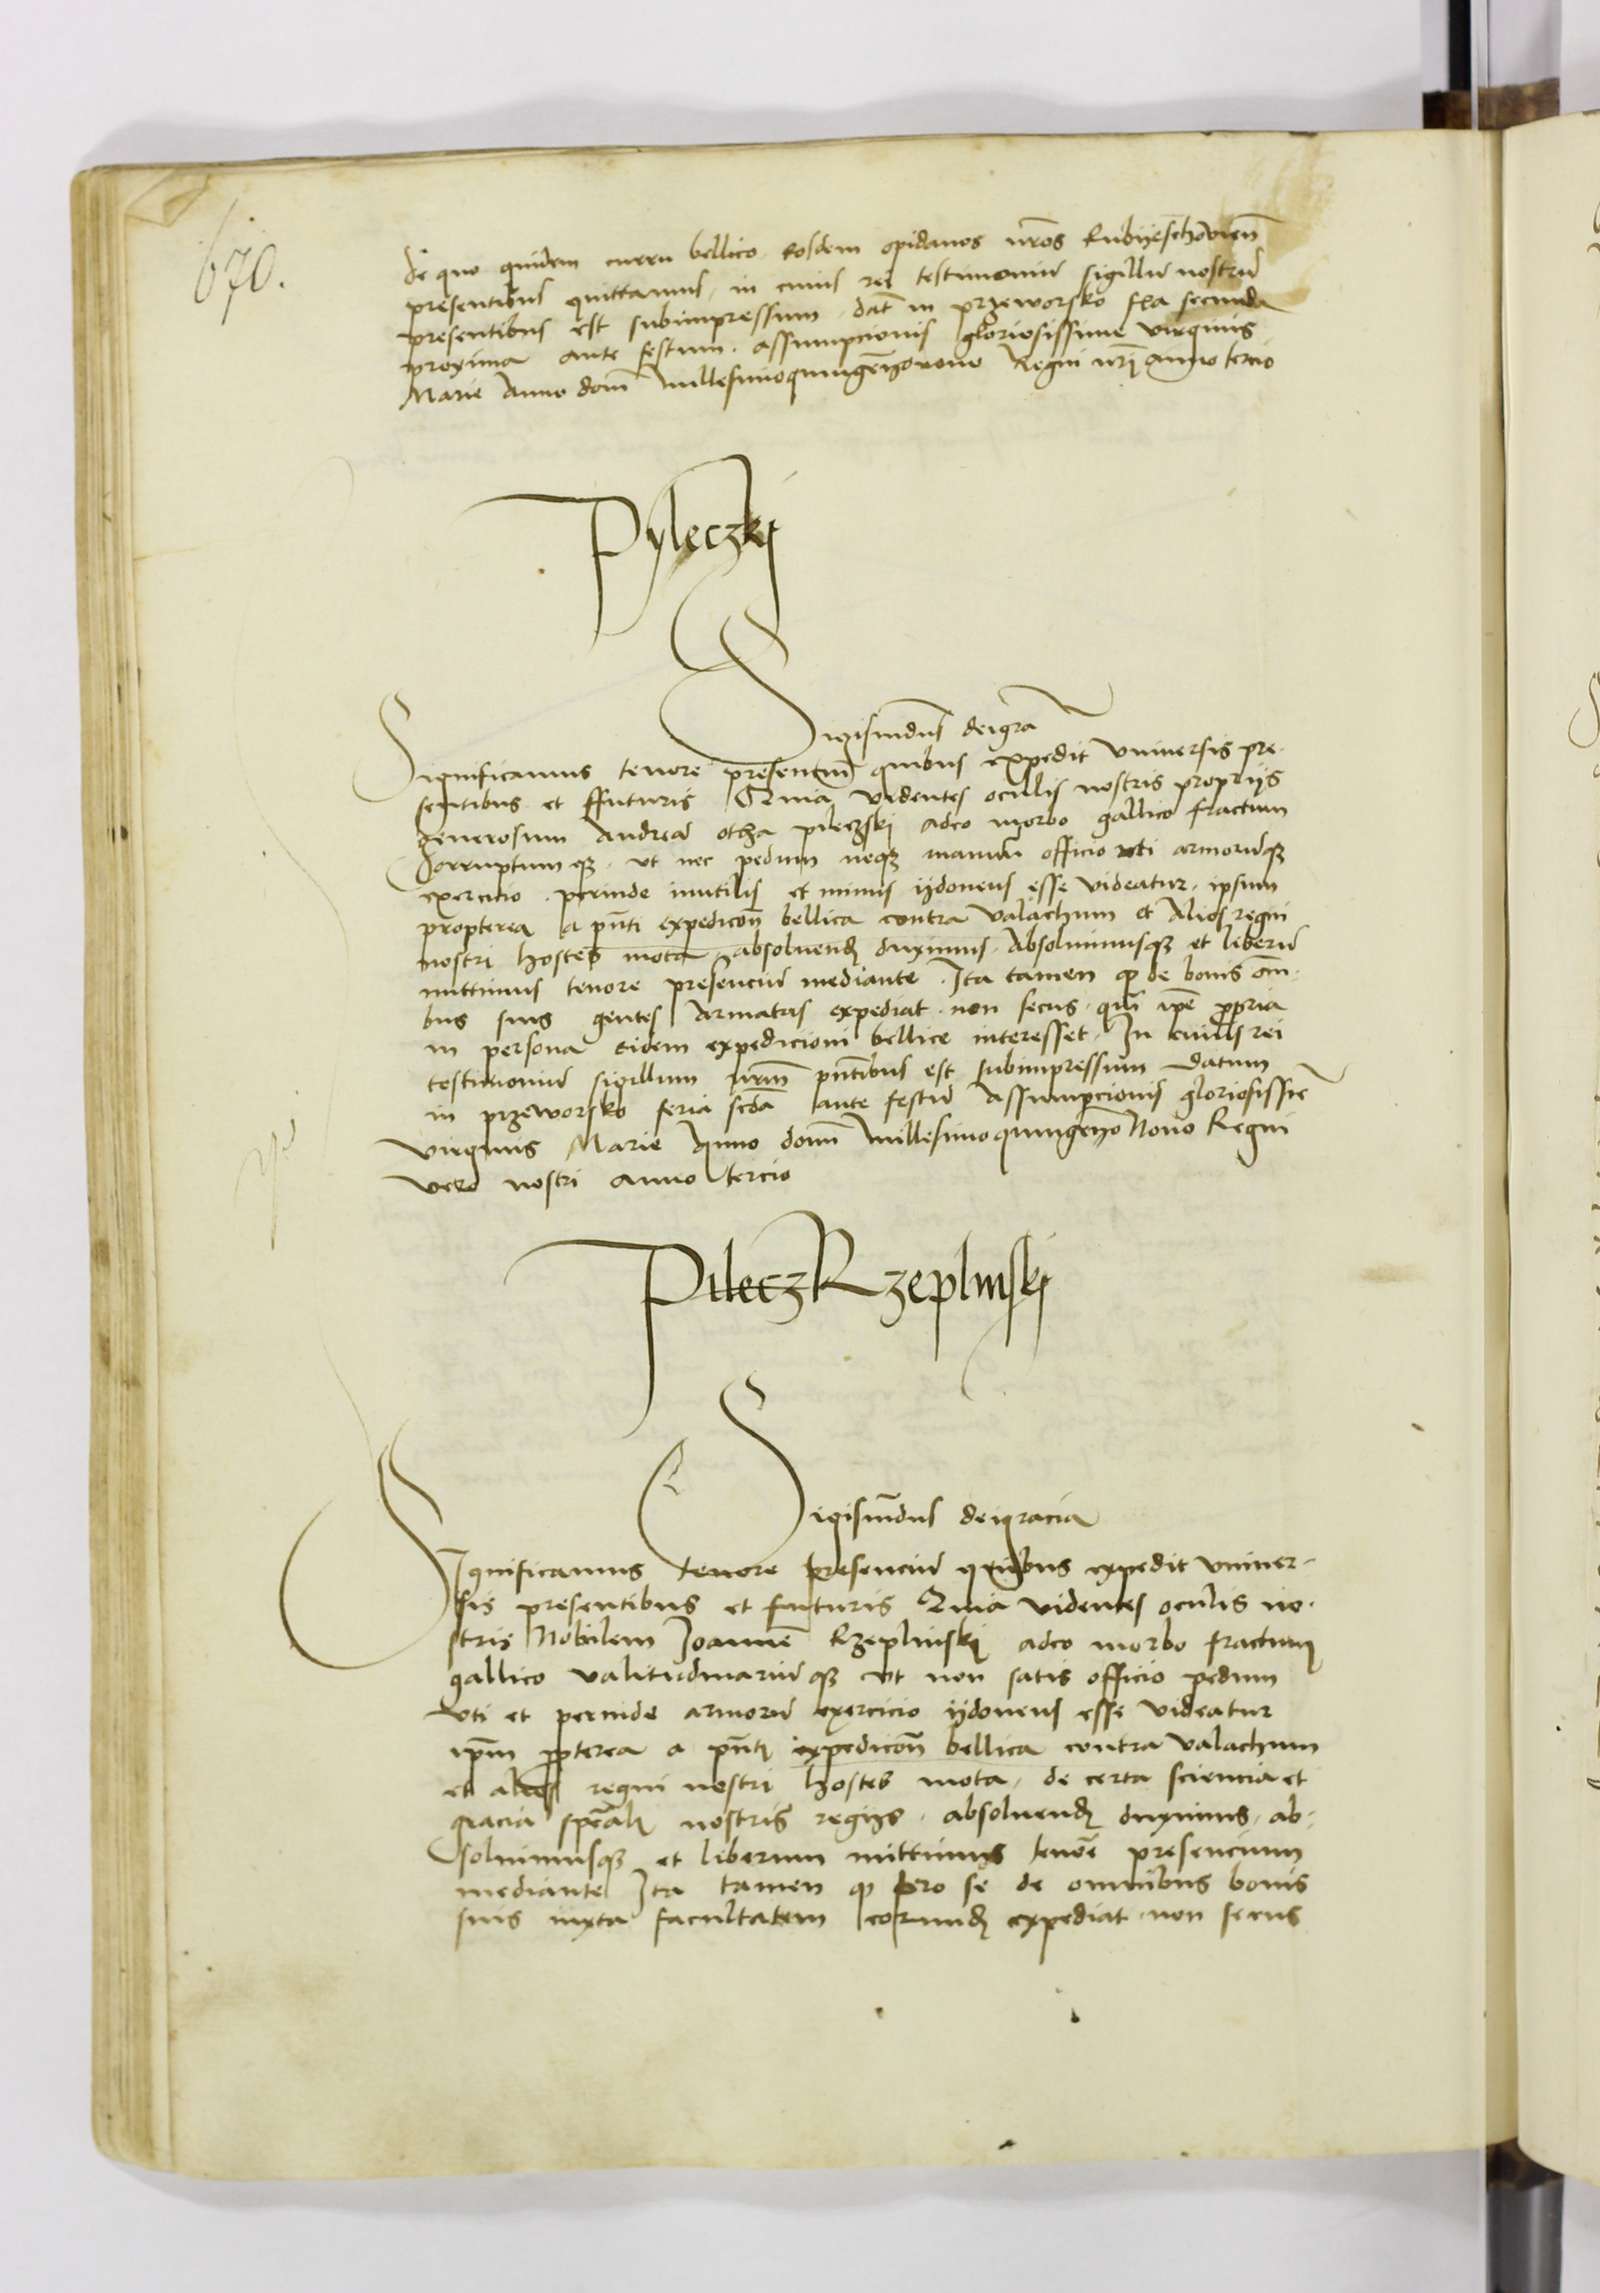 670.
de quo quidem curru bellico eosdem opidanos nr̄os Rubyeschovien̄
presentibus quittamus, in cuius rei testimoniū sigillū nostrū
presentibus est subimpressum. dat̄ in przeworsko f̄ia secunda
proxima ante festum. assumpcionis gloriosissime virginis
Marie Anno dom̄ Millesimoquingen̄ᵐᵒnono Regni nr̄i anno tercio
Pyleczkj
Sigismūdus deigr̄a
Significamus tenore presentiū quibus expedit vniversis pre-
sentibus et ffuturis Quia videntes oculis nostris propriis
generosum Andreā otcza pileczski adeo morbo gallico fractum
Corruptumqȝ. vt nec pedum neqȝ manuū officio vti armorūqȝ
exercicio. perinde inutilis et minus ijdoneus esse videatur. ipsum
propterea a pn̄ti expedicōn bellica contra valachum et Alios regni
nostri hostes mota absoluend̄ duximus. Absoluimusqȝ et liberū
mittimus tenore presenciū mediante. Ita tamen ꝙ de bonis om̄-
bus suis gentes Armatas expediat. non secus. qm̄ ip̄e p̄pria
in persona eidem expedicioni bellice interesset. In cuius rei
testimoniū sigillum nr̄m pn̄tibus est subimpressum Datum
in przeworsko feria scd̄a ante festū Assumpcionis gloriosissīe
virginis Marie Anno dom̄ Millesimoquingen̄ᵐᵒ Nono Regni
vero nostri anno tercio
PileczRzeplinskj
Sigismūdus deigracia
Significamus tenore presenciū quibus expedit vniver-
sis presentibus et futuris Quia videntes oculis no-
stris Nobilem Joannē Rzeplinskj adeo morbo fractum
gallico valitudinariūqȝ vt non satis officio pedum
vti et perinde armorū exercicio ijdoneus esse videatur
ip̄m p̄pterea a pn̄tj expedicōn bellica contra valachum
et alios regni nostri hostes mota, de certa sciencia et
gracia spēalj nostris regijs. absoluend̄ duximus, ab-
soluimusqȝ et liberum mittimus tenōe presencium
mediante Ita tamen ꝙ pro se de omnibus bonis
suis iuxta facultatem eorund̄ expediat non secus